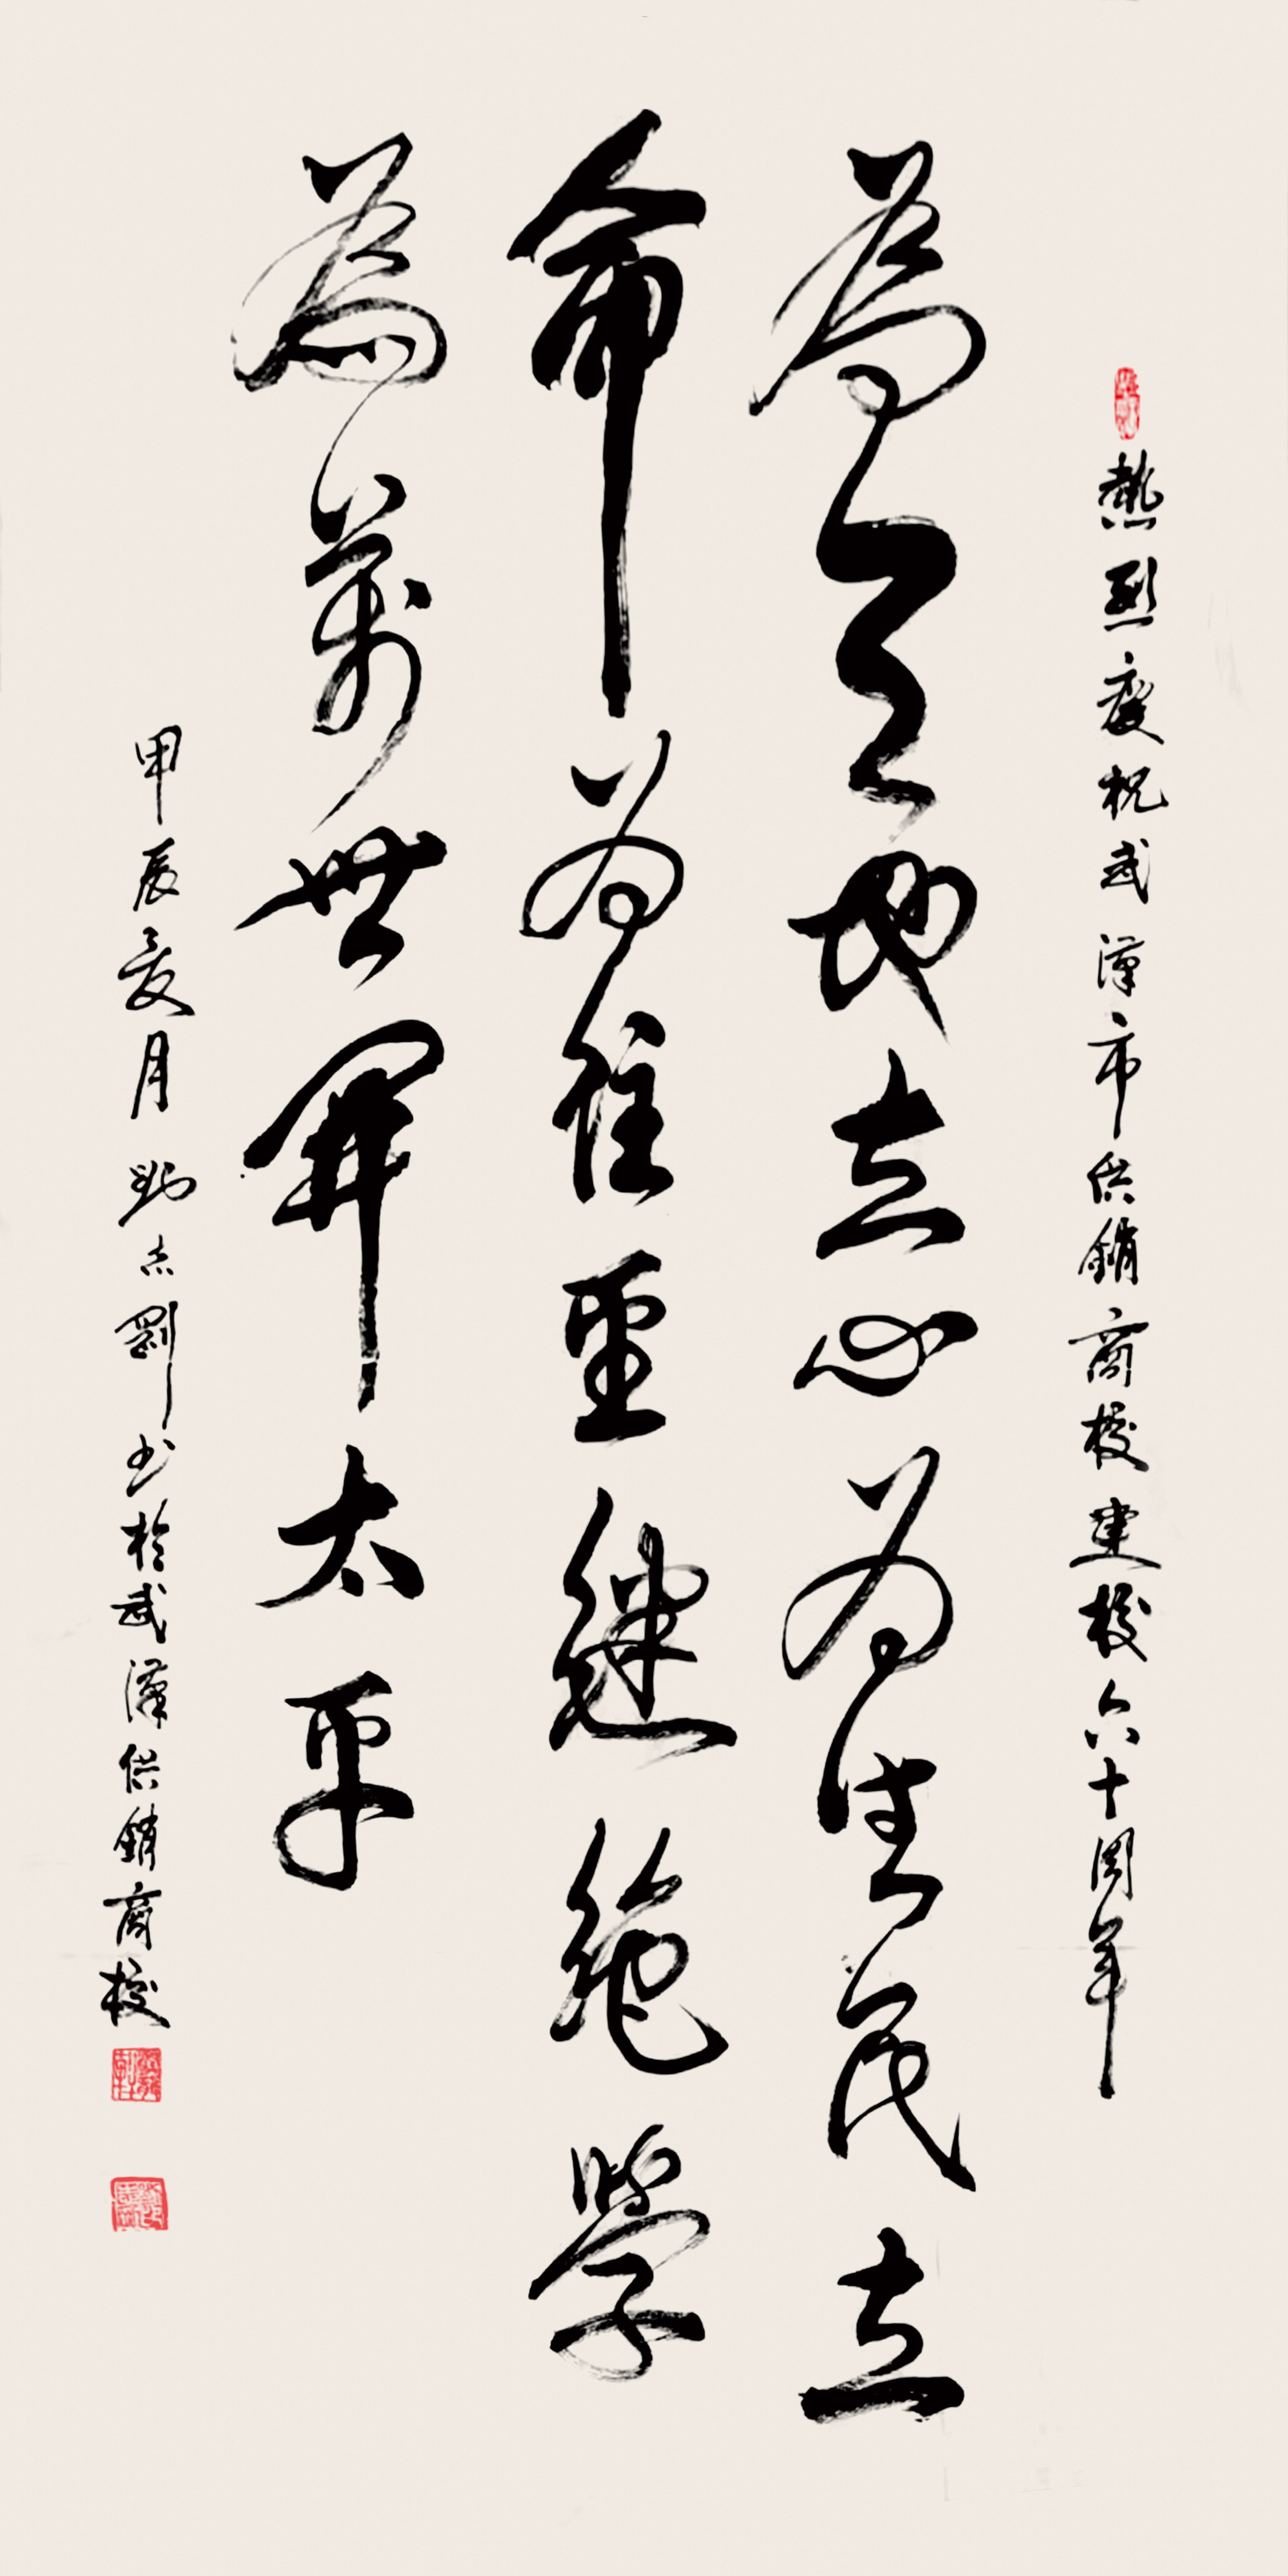 熱烈慶祝武漢市供銷商校建校六十周年
為天地立心為生民立
命為往聖繼絕學
為萬世開太平
甲辰夏月劉书於武漢供銷商校